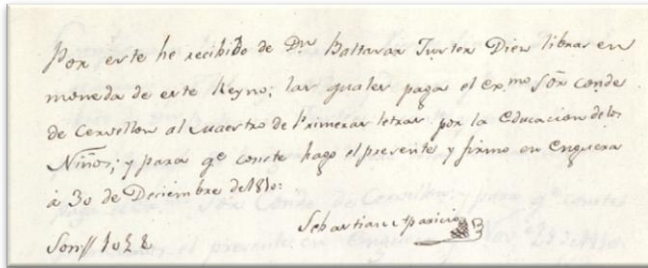 Por este he recibido de Dn Baltasar Diez libras en
moneda de este Reyno; las quales paga el exmo Sōr Conde
de Cervellon al Maestro de Primeras letras por la Educacion delos
Niños; y para qe conste hago el presente y firmo en Enguera
à 30 de Diciembre de 1810:
Sebastian Aparicio
Son// 10 L